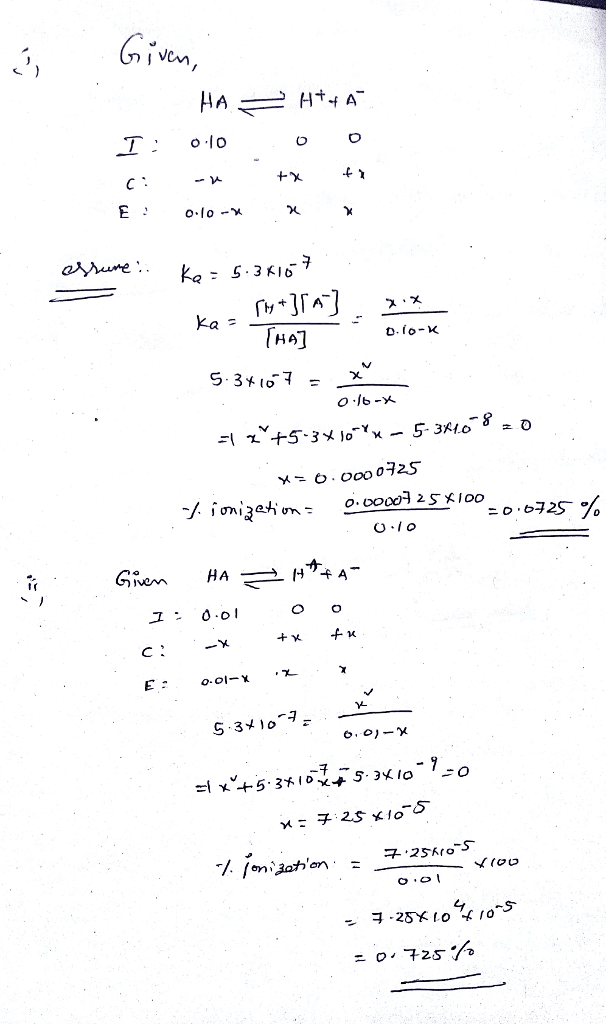 i, Given,
HA ⇌ H⁺ + A⁻
I: 0.10 0 0
C: -x +x +x
E: 0.10-x x x
assume:. Ka = 5.3×10⁻⁷
Ka = [H⁺][A⁻] / [HA] = x.x / 0.10-x
5.3×10⁻⁷ = x² / 0.10-x
=) x² + 5.3×10⁻⁷x - 5.3×10⁻⁸ = 0
x = 0.0000725
-/. ionization = 0.0000725×100 / 0.10 = 0.0725 %
ii, Given HA ⇌ H⁺ + A⁻
I: 0.01 0 0
C: -x +x +x
E: 0.01-x x x
5.3×10⁻⁷ = x² / 0.01-x
=) x² + 5.3×10⁻⁷x - 5.3×10⁻⁹ = 0
x = 7.25×10⁻⁵
-/. ionization = 7.25×10⁻⁵ / 0.01 ×100
= 7.25×10⁴×10⁻⁵
= 0.725 %